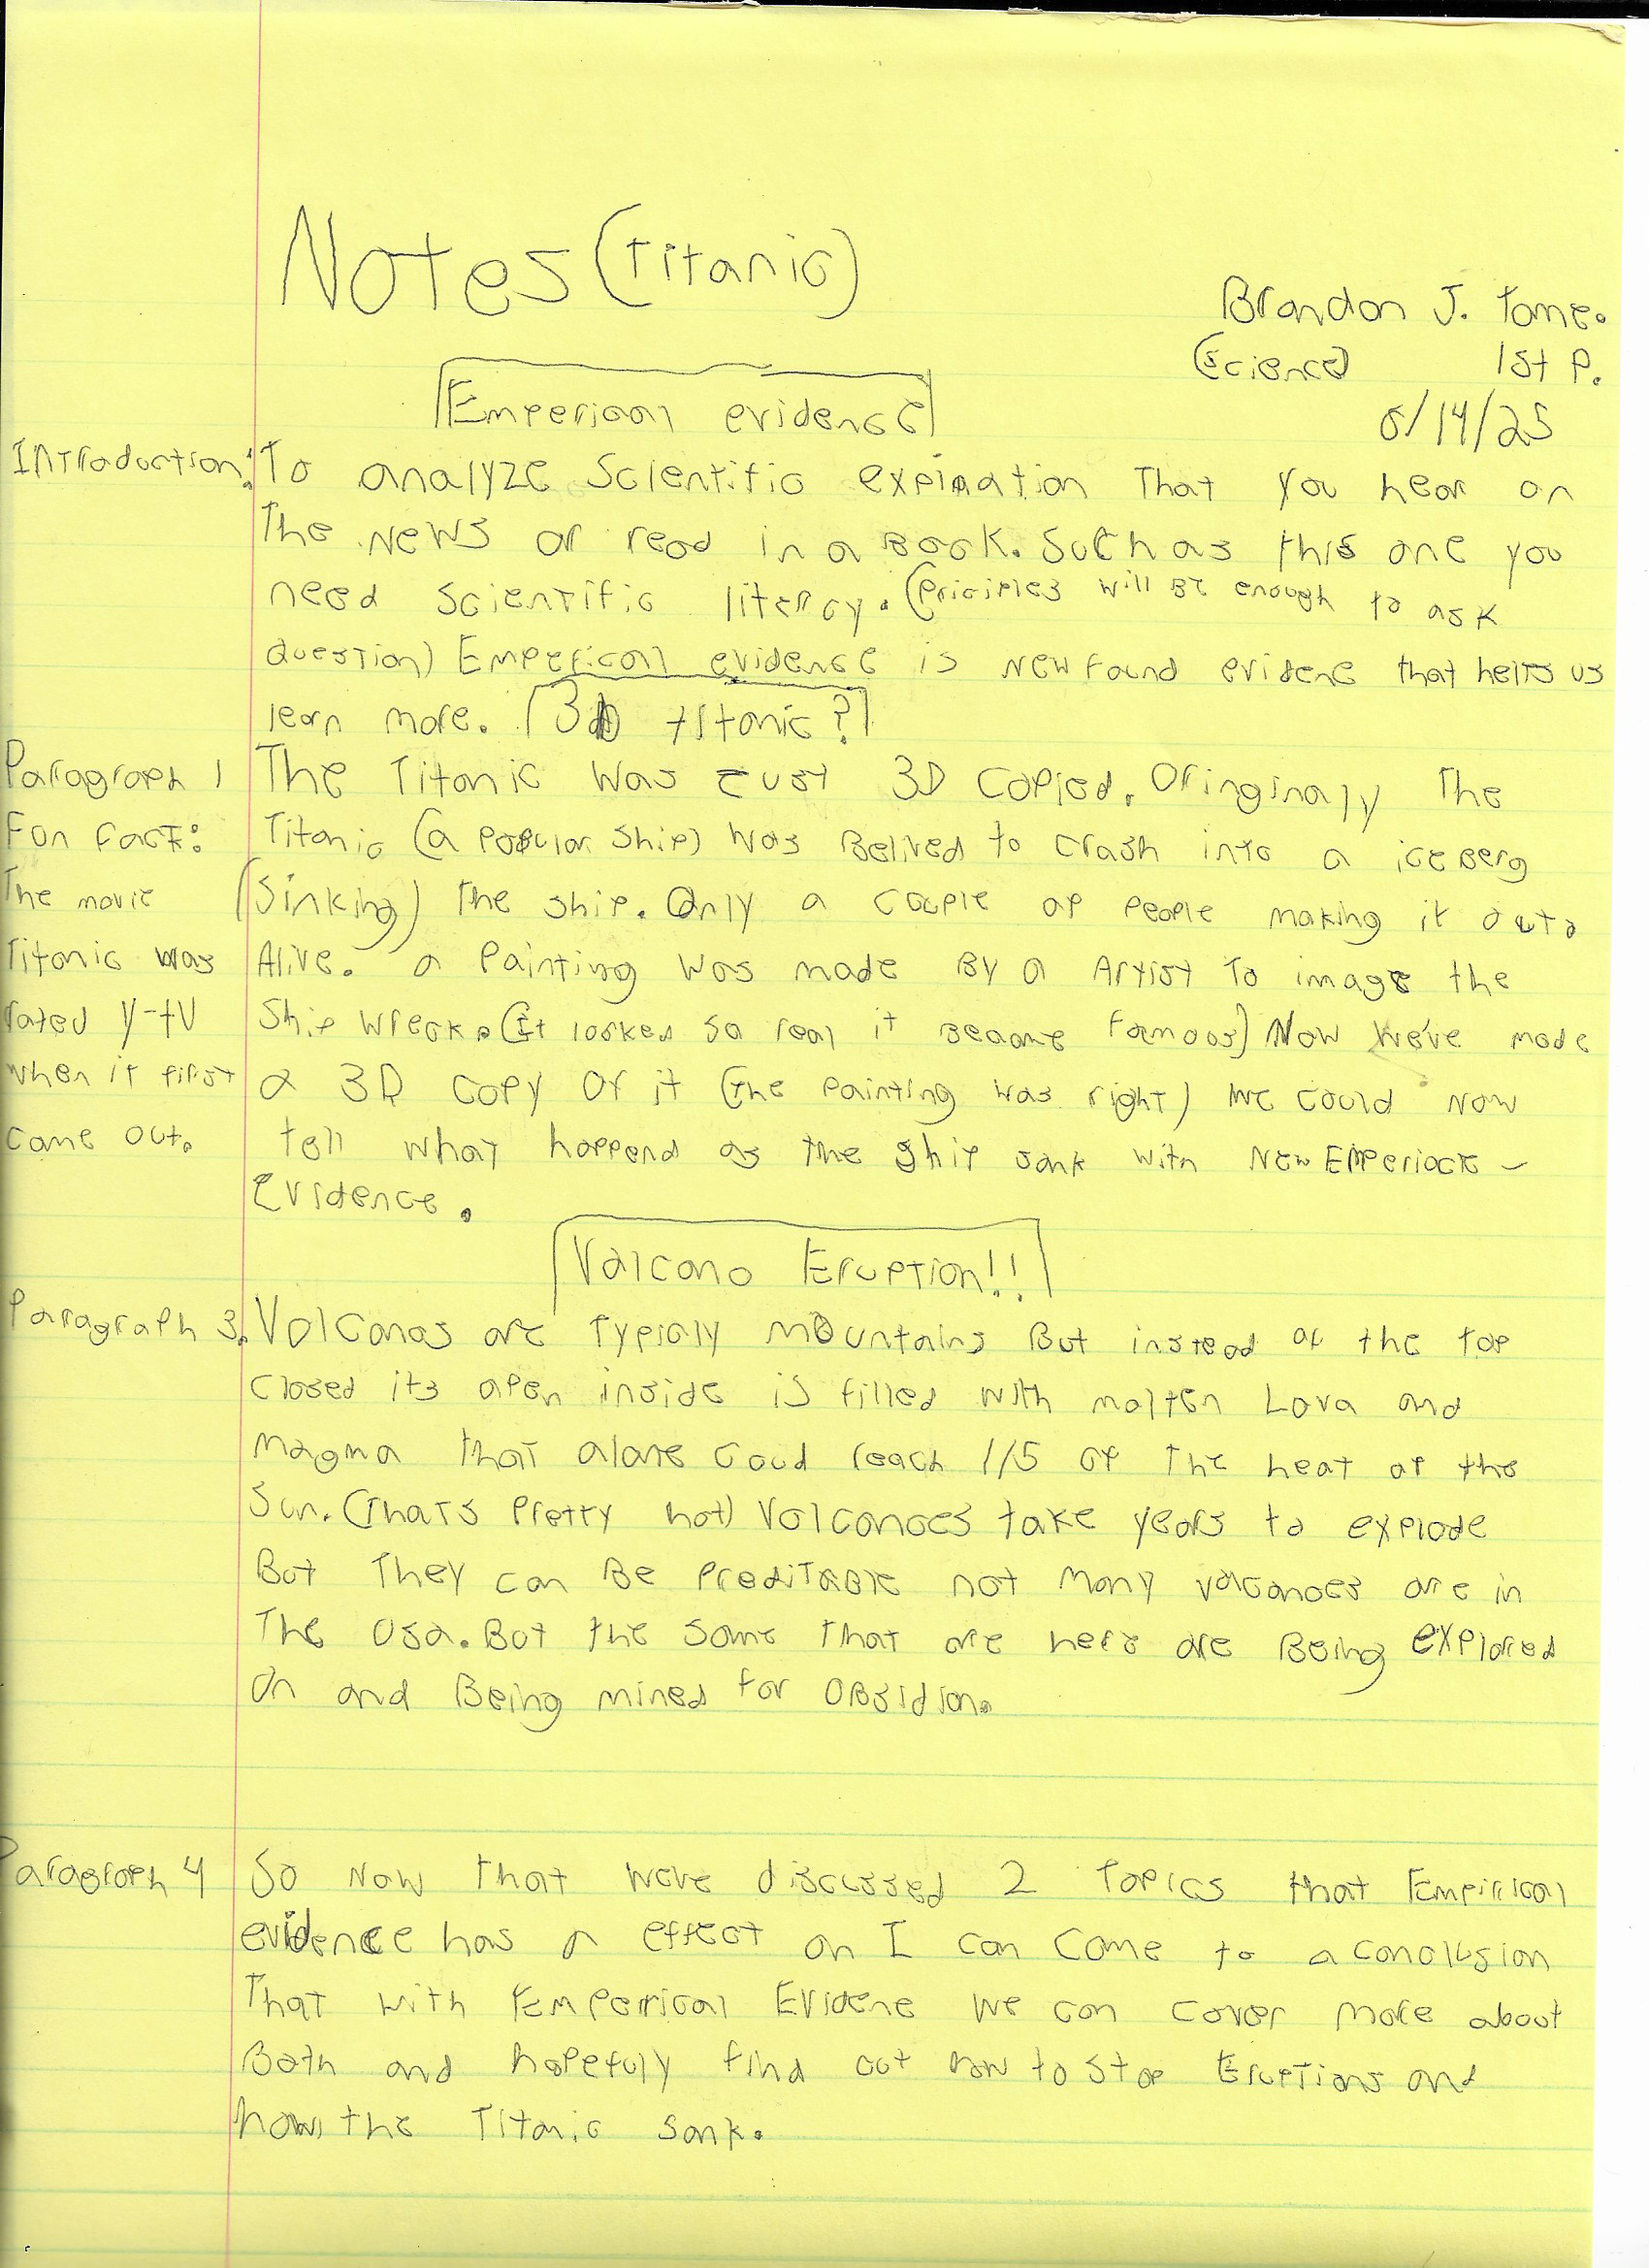 Notes (Titanic)
Brandon J. Tome.
(Science) 1st P.
Emperical evidence
/14/25
Introduction: To analyze Scientific explnation That you hear on
The News or read in a Book. Such as this one you
need scientific litercy. (Priciples will BE enough to ask
question) Emperical evidence is New found evidene that helps us
learn more. 3D titanic?
Paragraph 1 The Titanic Was Just 3D Copied. Oringinaly The
Fun fact: Titanic (a Popular Ship) Was Belived to Crash into a iceBerg
The movie (Sinking) The ship. Only a couple of People making it out
Titanic was Alive. a Painting Was made By a Artist To image the
rated y-tV Ship Wreck. (It looked So real it Became Famous) Now We've made
when it first a 3D Copy Of it (The Painting Was right) We Could Now
Came out. tell What happend as The Ship sank With New
Evidence.
Valcano Eruption!!
Paragraph 3. Volcanos are Typicaly Mountains But instead of the top
Closed its open inside is filled With molten Lava and
Magma That alone Coud reach 1/5 of The heat of the
Sun. (Thats Pretty hot) Volcanoes take years to explode
But They can Be PrediTABle not Many Valcanoes are in
The Usa. But the Some That are here are Being explored
On and Being mined for OBsidian.
Paragraph 4 So Now That We've discussed 2 Topics that Empirical
evidence has a effect on I can Come to a conclusion
That with Emperrical Evidene We can cover More about
Both and hopefuly find out how to stop Eruptions and
how the Titanic Sank.